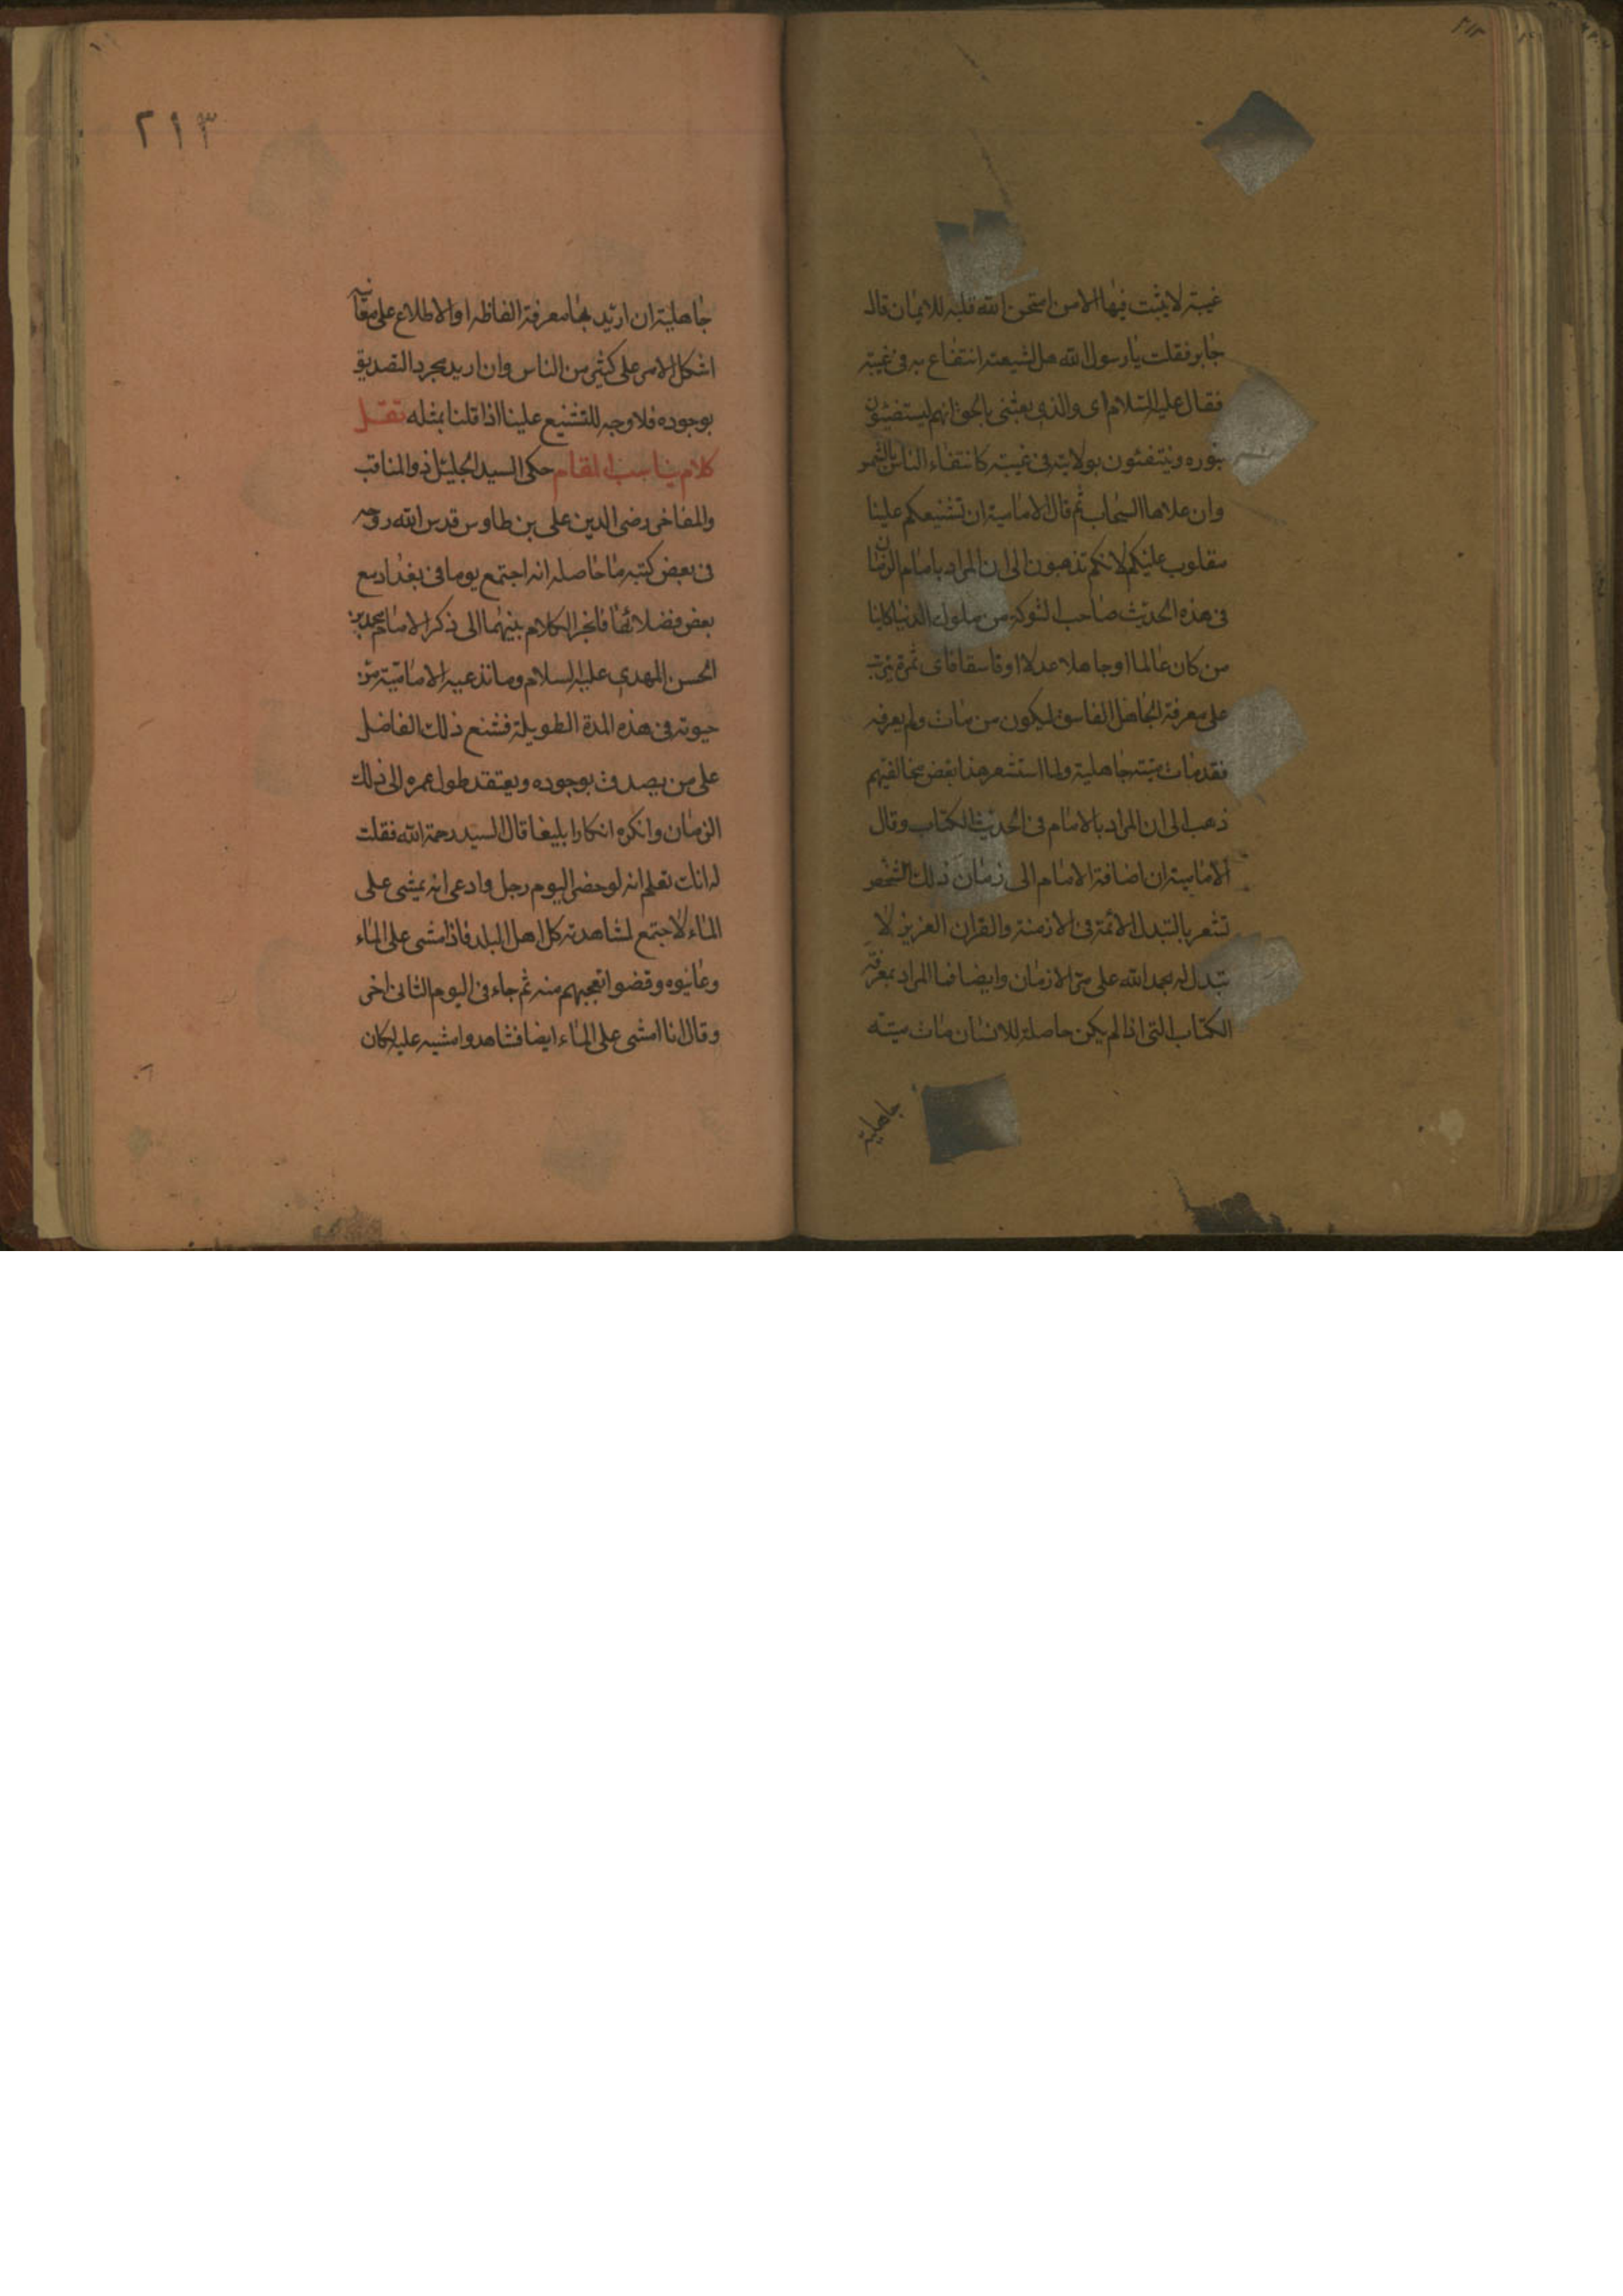 ٢١٢
غيبة لا يثبت فيها الا من امتحن الله قلبه للايمان قال
جابر فقلت يا رسول الله هل لشيعته انتفاع به في غيبته
فقال عليه السلام اى والذي بعثني بالحق انهم ليستضيئون
بنوره وينتفعون بولايته في غيبته كانتفاع الناس بالشمس
وان علاها السحاب ثم قال الامامية ان تشنيعكم علينا
مقلوب عليكم لانكم تذهبون الى ان المراد بامام الزمان
في هذه الحديث صاحب الشوكة من ملوك الدنيا كاينا
من كان عالما او جاهلا عدلا او فاسقا فاى ثمرة تترتب
على معرفة الجاهل الفاسق ليكون من مات ولم يعرفه
فقد مات ميتة جاهلية ولما استشعر هذا بعض مخالفيهم
ذهب الى ان المراد بالامام في الحديث الكتاب وقال
الامامية ان اضافة الامام الى زمان ذلك الشخص
تشعر بالتبدل الائمة في الازمنة والقران العزيز لا
تبدل له بحمد الله على مر الازمان وايضا فما المراد بمعرفة
الكتاب التي اذا لم يكن حاصلة للانسان مات ميتة
جاهلية
٢١٣
جاهلية ان اريد بها معرفة الفاظه او الاطلاع على معانيه
اشكل الامر على كثير من الناس وان اريد مجرد التصديق
بوجوده فلا وجه للتشنيع علينا اذا قلنا بمثله نقل
كلام يناسب المقام حكى السيد الجليل ذو المناقب
والمفاخر رضى الدين على بن طاوس قدس الله روحه
في بعض كتبه ما حاصله انه اجتمع يوما في بغداد مع
بعض فضلائها فانجر الكلام بينهما الى ذكر الامام محمد بن
الحسن المهدي عليه السلام وما تدعيه الامامية من
حيوته في هذه المدة الطويلة فشنع ذلك الفاضل
على من يصدق بوجوده ويعتقد طول عمره الى ذلك
الزمان وانكره انكارا بليغا قال السيد رحمة الله فقلت
له انك تعلم انه لو حضر اليوم رجل وادعى انه يمشى على
الماء لاجتمع لمشاهدته كل اهل البلد فاذا مشى على الماء
وعاينوه وقضوا تعجبهم منه ثم جاء في اليوم الثانى اخر
وقال انا امشى على الماء ايضا فشاهدوا مشيه عليه لكان